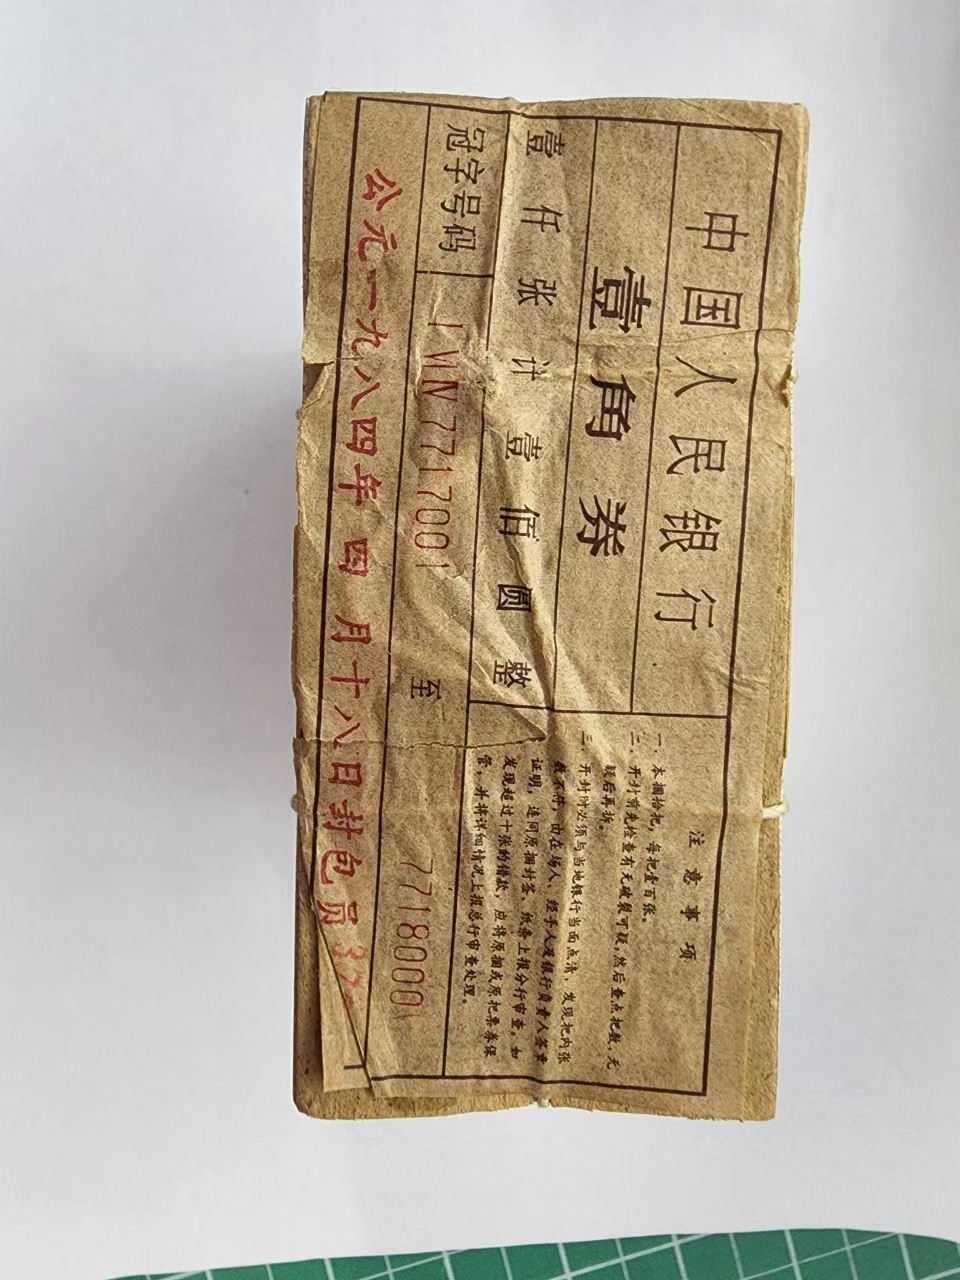 中国人民银行
壹角券
壹仟张计壹佰圆整
冠字号码 IИN7717001 至 7718000
公元一九八四年四月十八日封包员
注意事项
一、本捆拾把，每把壹百张。
二、开封前先检查有无破裂可疑，然后查点把数，无
疑后再拆。
三、开封时必须与当地银行当面点清，发现把内张
数不符，由在场人、经手人及银行负责人签章
证明，连同原捆封签、纸条上报分行审查。如
发现超过十张的错款，应将原捆或原把票券保
管，并将详细情况上报总行审查处理。